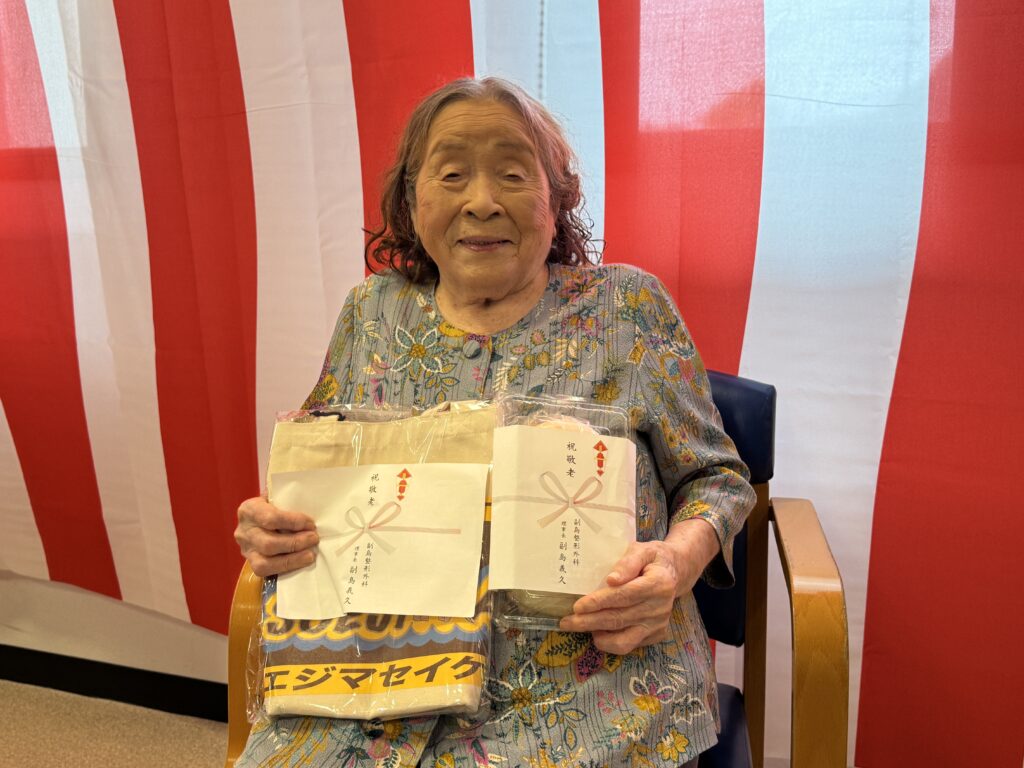 祝敬老
副島整形外科
理事長 副島義久
祝敬老
副島整形外科
理事長 副島義久
エジマセイケ